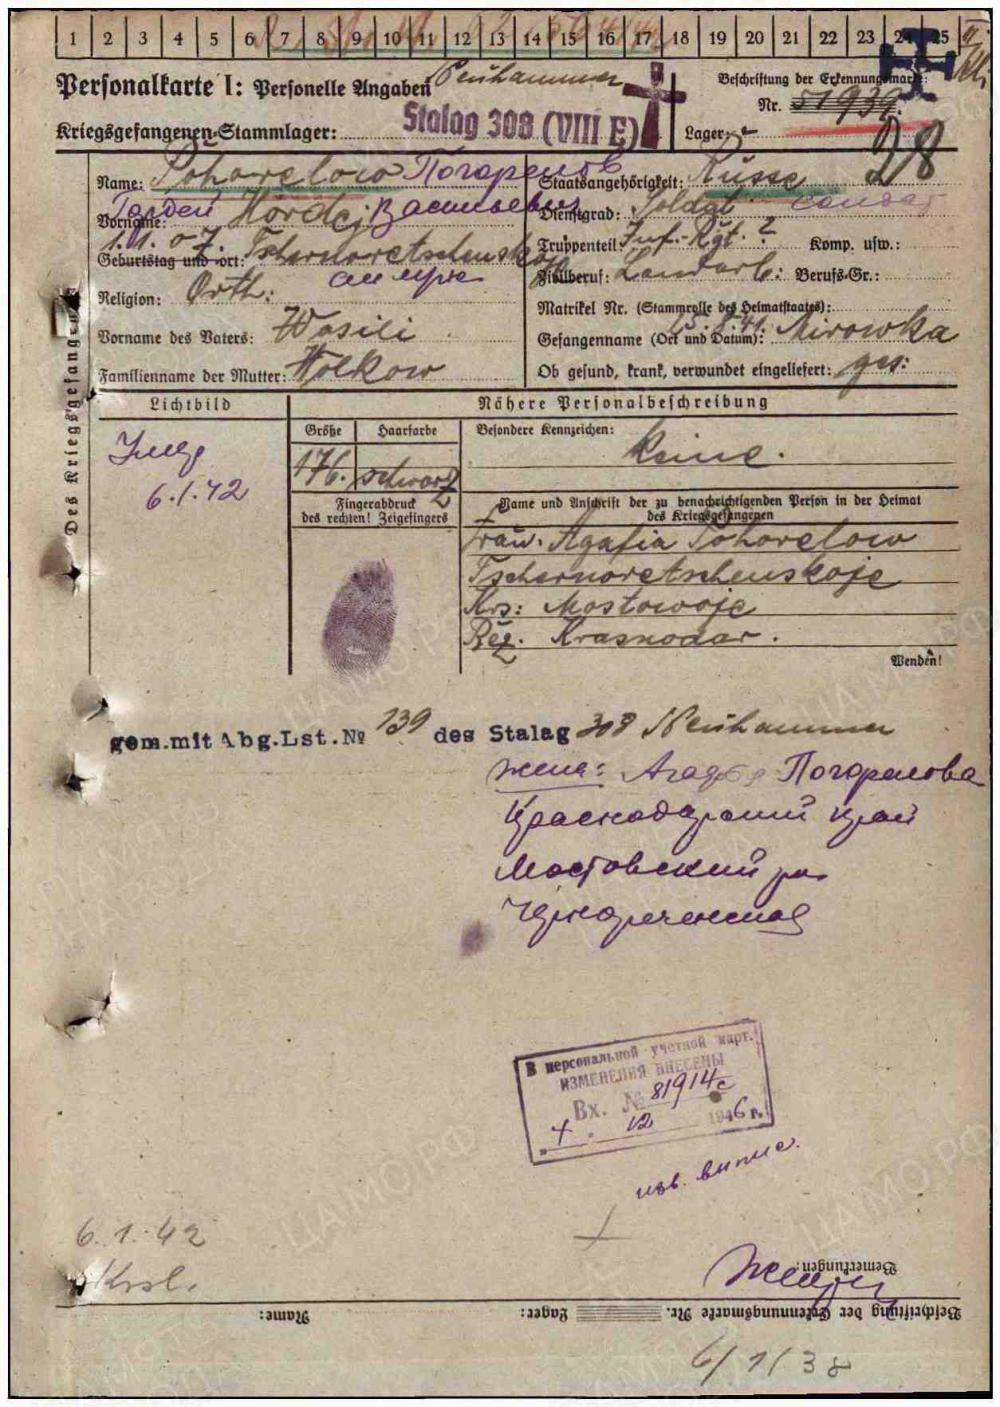 1 2 3 4 5 6 7 8 9 10 11 12 13 14 15 16 17 18 19 20 21 22 23 24 25
Personalkarte I: Personelle Angaben
Neuhammer
Beschriftung der Erkennungsmarke:
Nr. 51939
Kriegsgefangenen-Stammlager: Stalag 308 (VIII E)
Lager:
Des Kriegsgefangenen
Name: Pohorelow Погорелов
Staatsangehörigkeit: Russe
Vorname: Гордей Hordej Васильевич
Dienstgrad: Soldat солдат
Geburtstag und -ort: 1.1.07. Tschernoretschenskoje
Truppenteil: Inf.-Rgt. ? Komp. usw.:
Zivilberuf: Landarb: Berufs-Gr.:
Religion: Orth:
Matrikel Nr. (Stammrolle des Heimatstaates):
Vorname des Vaters: Wasili
Gefangennahme (Ort und Datum): 15.8.41. Mirowka
Familienname der Mutter: Wolkow
Ob gesund, krank, verwundet eingeliefert: ges:
Lichtbild
Nähere Personalbeschreibung
Größe Haarfarbe
Besondere Kennzeichen:
176. schwarz
keine.
6.1.42
Fingerabdruck
des rechten! Zeigefingers
Name und Anschrift der zu benachrichtigenden Person in der Heimat
des Kriegsgefangenen
Frau. Agafia Pohorelow
Tschernoretschenskoje
Krs: Mostowoje
Krasnodar.
Wenden!
gem.mit Abg.Lst.№ 139 des Stalag 308 Neuhammer
жена: Погорелова
Краснодарский край
Мостовский
Чернореченская
В персональной учетной карт.
ИЗМЕНЕНИЯ ВНЕСЕНЫ
Вх. № 81914с
12 1946 г.
изв. выпис.
6.1.42
Bemerkungen:
Beschriftung der Erkennungsmarke Nr. Lager: Name:
6/1/38
ЦАМО РФ